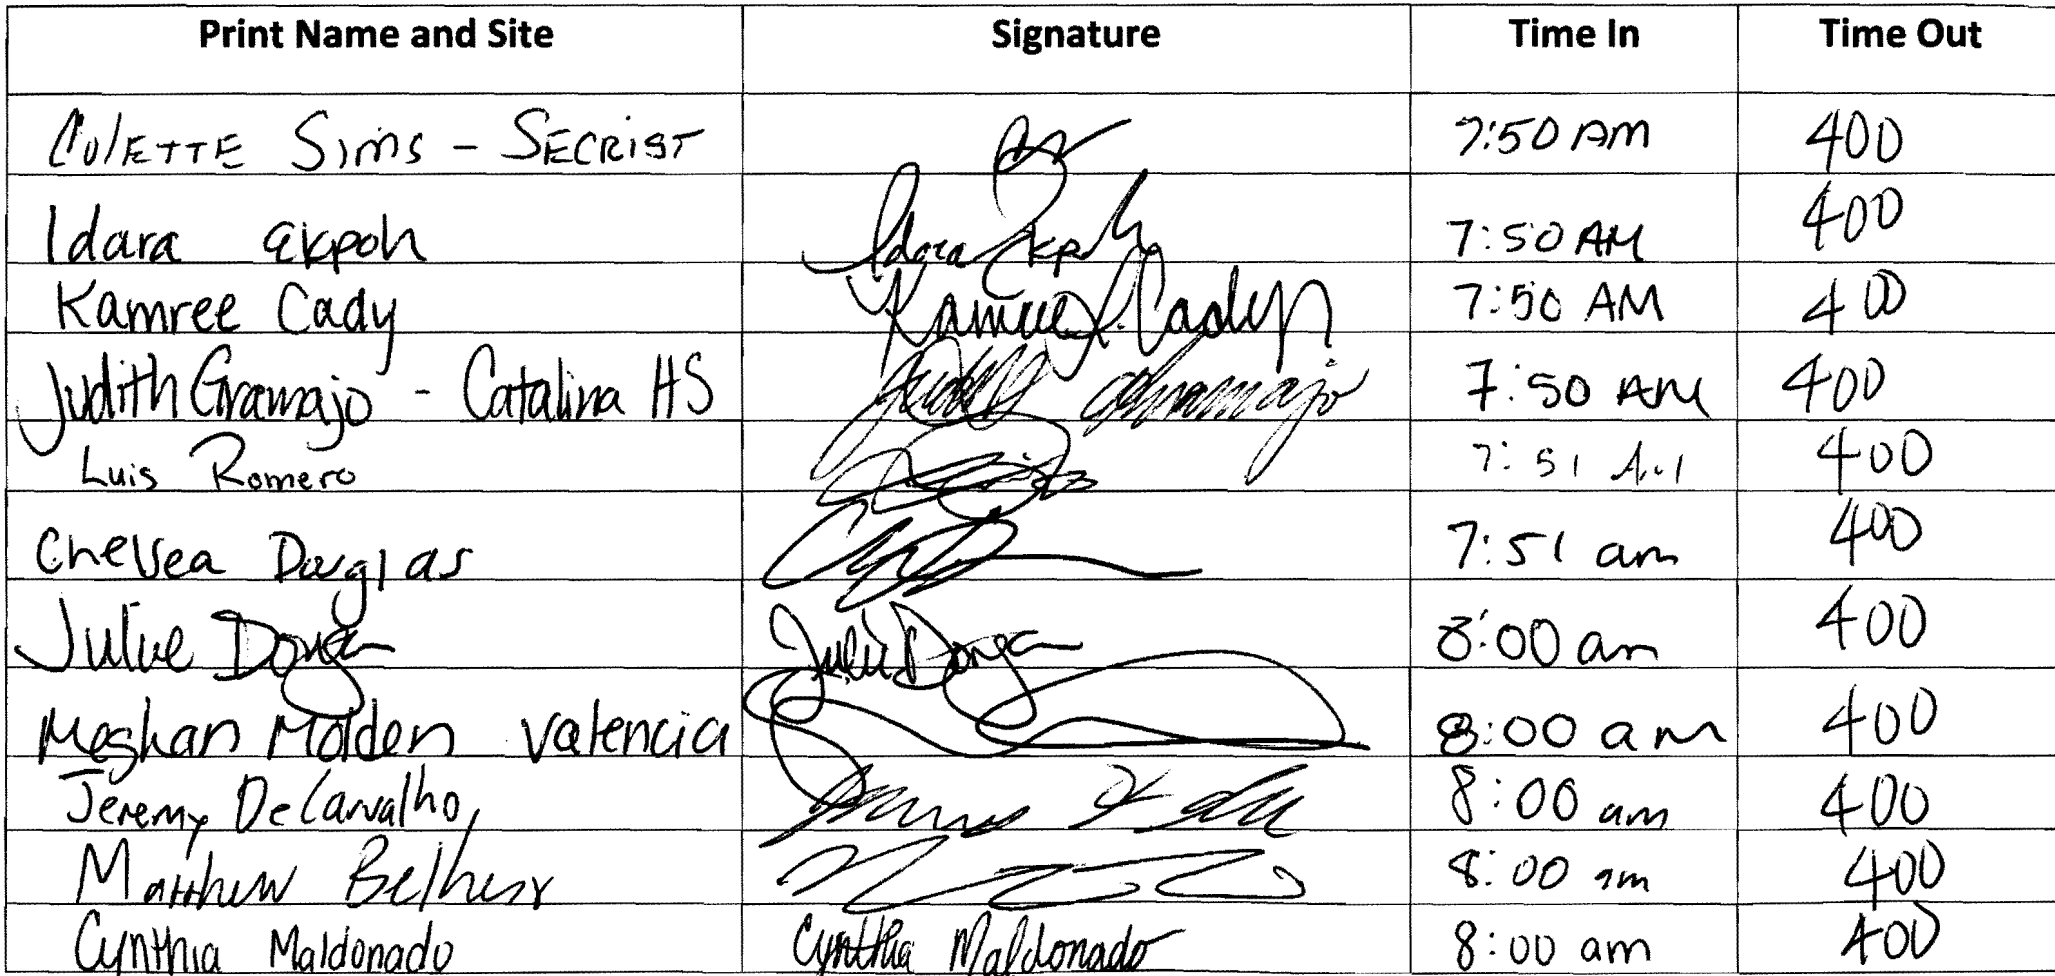 Print Name and Site Signature Time In Time Out
Colette Sims - Secrist 7:50 AM 400
Idara Ekpoh Idara Ekpoh 7:50 AM 400
Kamree Cady Kamree Cady 7:50 AM 400
Judith Gramajo - Catalina HS Judith Gramajo 7:50 AM 400
Luis Romero 7:51 AM 400
Chelsea Douglas 7:51 am 400
Julie Dongan Julie Dongan 8:00 am 400
Meghan Molden Valencia 8:00 am 400
Jeremy DeCarvalho, 8:00 am 400
Matthew 8:00 am 400
Cynthia Maldonado Cynthia Maldonado 8:00 am 400